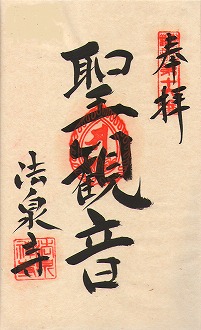 奉拝
聖観音
法泉寺